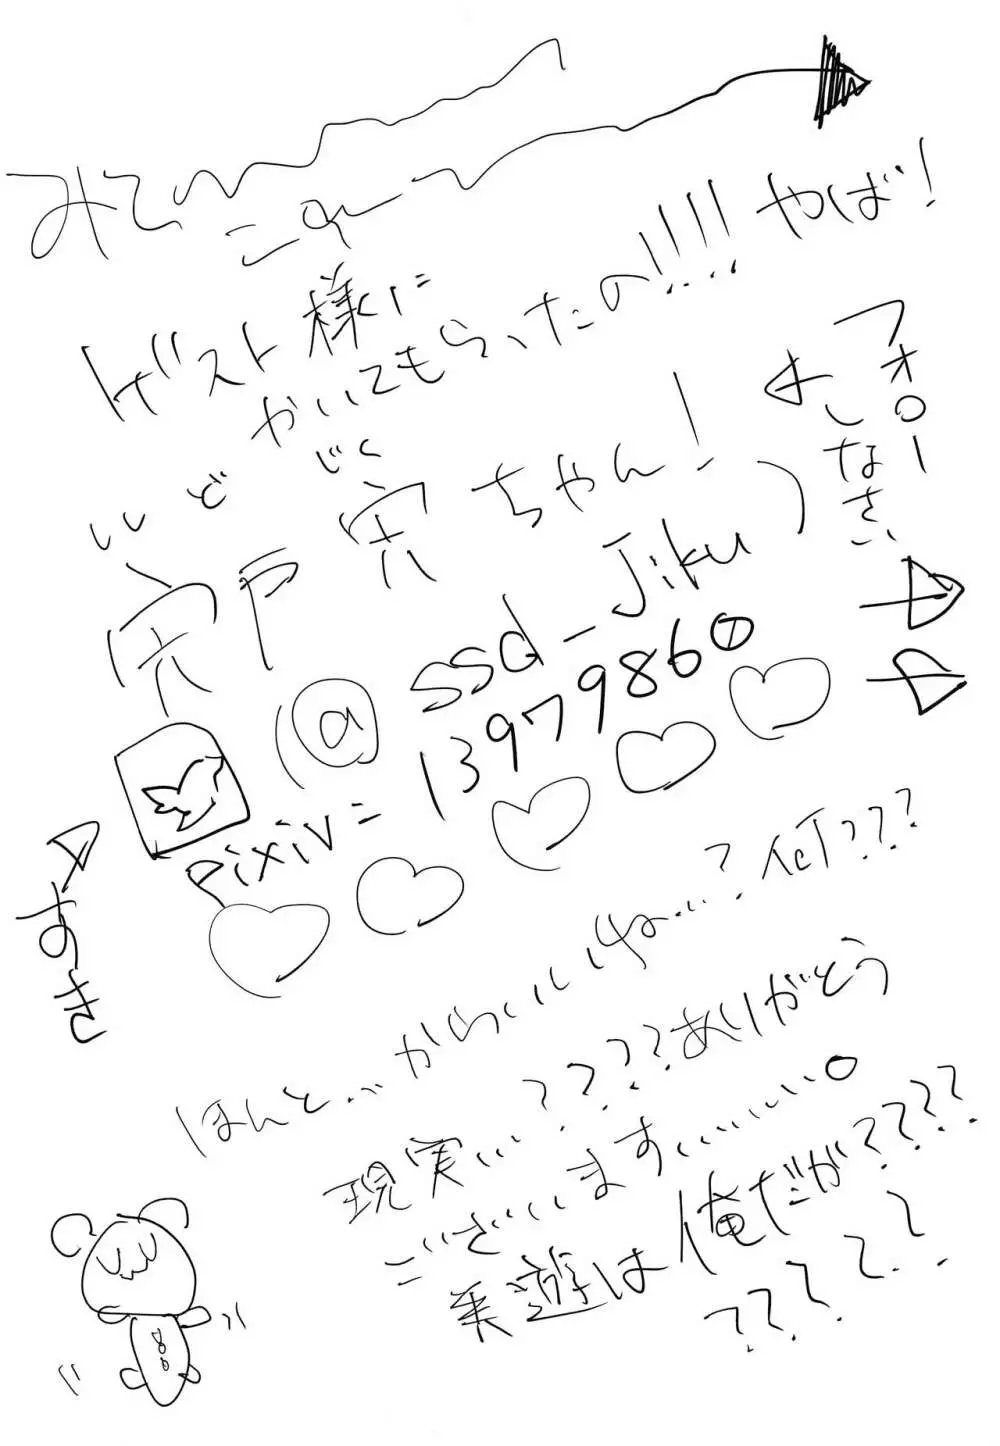 みて
ゲスト様に
かいてもらったの!!!! やば!
ししど じく
宍戸 宍ちゃん!
(@ssd_Jiku)
フォロー
しなさい
pixiv= 13979860
すき
ほんと…からいいね…?何???
現実…????ありがとう
ございます……。
美遊は俺だが????
?????